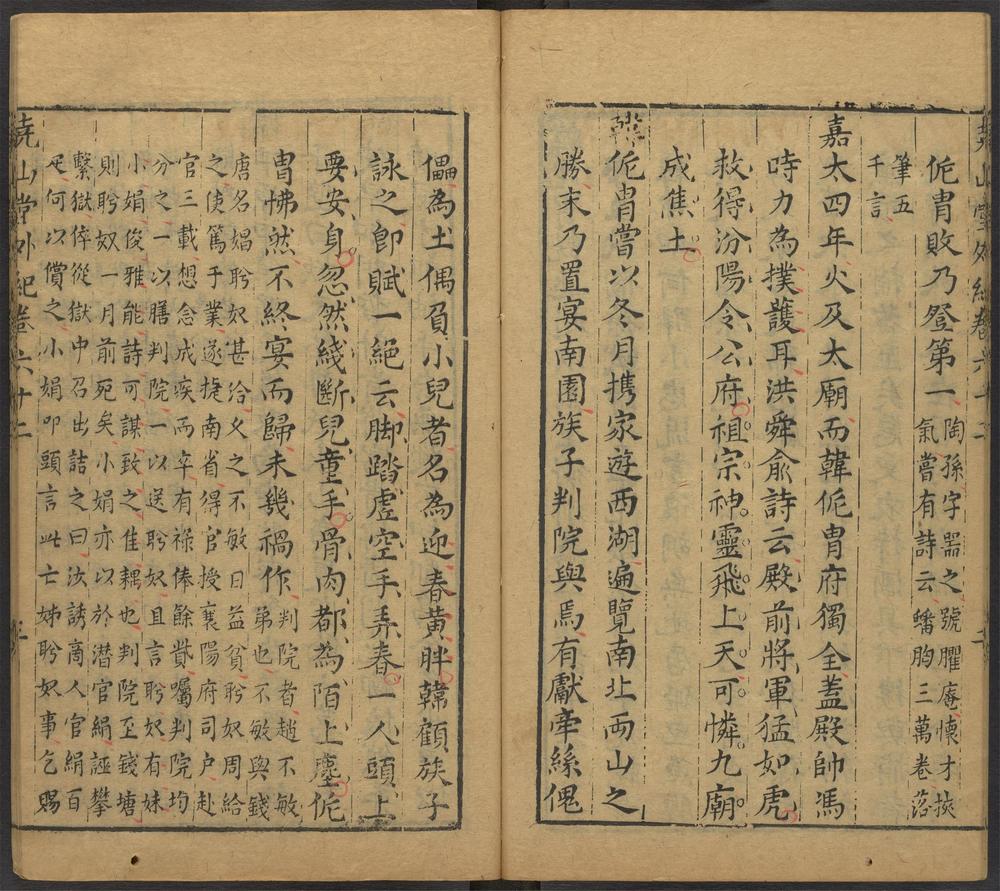 侂胄敗乃登第一陶孫字器之號臞庵懷才挾
氣嘗有詩云蟠胸三萬卷落
筆五
千言
嘉太四年火及太廟而韓侂胄府獨全蓋殿帥馮
時力為撲護耳洪舜俞詩云殿前將軍猛如虎
救得汾陽令公府祖宗神靈飛上天可憐九廟
成焦土
韓侂胄嘗以冬月携家遊西湖遍覽南北兩山之
勝末乃置宴南園族子判院與焉有獻牽絲傀
儡為土偶負小兒者名為迎春黃胖韓顧族子
詠之卽賦一絕云脚踏虛空手弄春一人頭上
要安身忽然綫斷兒童手骨肉都為陌上塵侂
胄怫然不終宴而歸未幾禍作判院者趙不敏
弟也不敏與錢
唐名娼盻奴甚洽久之不敏日益貧盻奴周給
之使篤于業遂捷南省得官授襄陽府司户赴
官三載想念成疾而卒有祿俸餘貲囑判院均
分之一以膳判院一以送盻奴且言盻奴有妹
小娟俊雅能詩可謀致之佳耦也判院至錢塘
則盻奴一月前死矣小娟亦以於潛官絹誣攀
繫獄倅從獄中召出詰之曰汝誘商人官絹百
疋何以償之小娟叩頭言此亡姊盻奴事乞賜
堯山堂外紀卷六十二